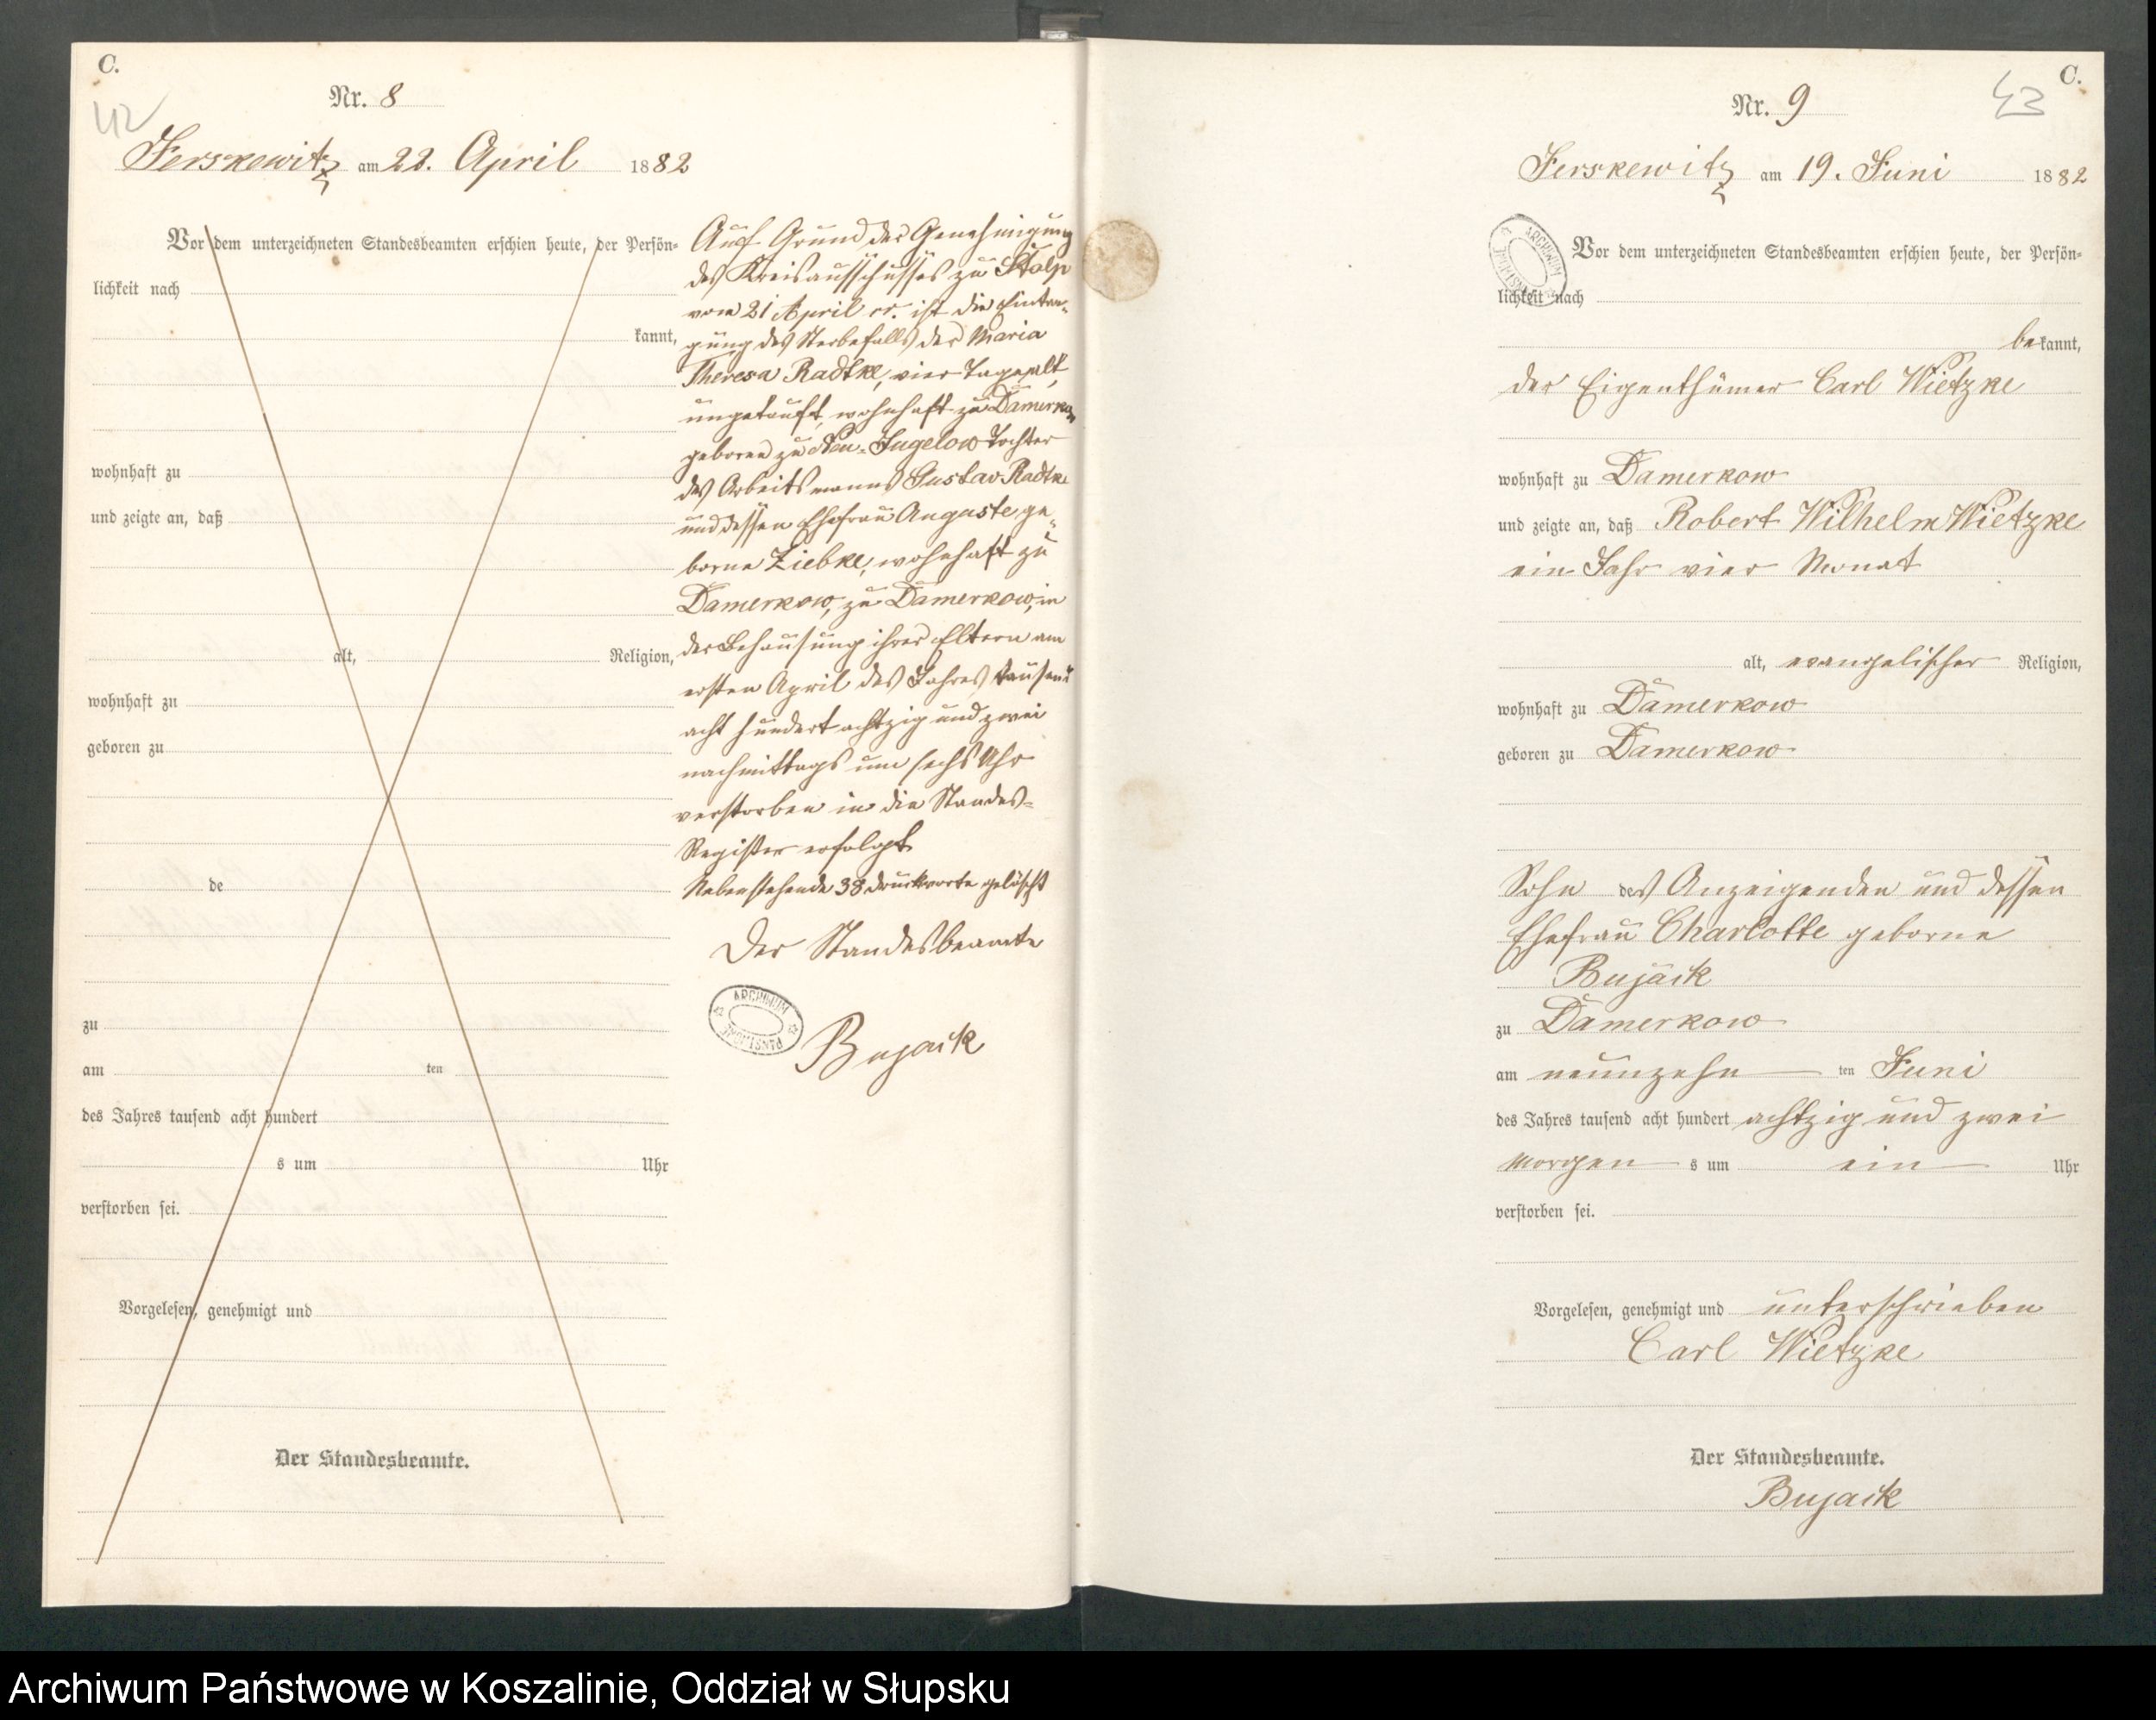 C.
42
Nr. 8
Jerskewitz am 22. April 1882
Vor dem unterzeichneten Standesbeamten erschien heute, der Persön-
lichkeit nach
kannt,
wohnhaft zu
und zeigte an, daß
alt, Religion,
wohnhaft zu
geboren zu
de
zu
am ten
des Jahres tausend acht hundert
s um Uhr
verstorben sei.
Vorgelesen, genehmigt und
Der Standesbeamte.
Auf Grund der Genehmigung
des Kreisausschusses zu Stolp
vom 21 April cr. ist die Eintra-
gung des Sterbefalls der Maria
Theresa Radtke, vier Tage alt,
ungetauft, wohnhaft zu Damerkow
geboren zu Neu-Jugelow Tochter
des Arbeitsmanns Gustav Radtke
und dessen Ehefrau Auguste ge-
borne Ziebke, wohnhaft zu
Damerkow, zu Damerkow, in
der Behausung ihrer Eltern am
ersten April des Jahres tausend
acht hundert achtzig und zwei
nachmittags um sechs Uhr
verstorben in die Standes-
Register erfolgt
Nebenstehende 38 Druckworte gelöscht
Der Standesbeamte
ARCHIWUM PAŃSTWOWE
Bujack
C.
43
Nr. 9
Jerskewitz am 19. Juni 1882
ARCHIWUM PAŃSTWOWE
Vor dem unterzeichneten Standesbeamten erschien heute, der Persön-
lichkeit nach
bekannt,
der Eigenthümer Carl Wietzke
wohnhaft zu Damerkow
und zeigte an, daß Robert Wilhelm Wietzke
ein Jahr vier Monat
alt, evangelischer Religion,
wohnhaft zu Damerkow
geboren zu Damerkow
Sohn des Anzeigenden und dessen
Ehefrau Charlotte geborne
Bujack
zu Damerkow
am neunzehn ten Juni
des Jahres tausend acht hundert achtzig und zwei
Morgen s um ein Uhr
verstorben sei.
Vorgelesen, genehmigt und unterschrieben
Carl Wietzke
Der Standesbeamte.
Bujack
Archiwum Państwowe w Koszalinie, Oddział w Słupsku